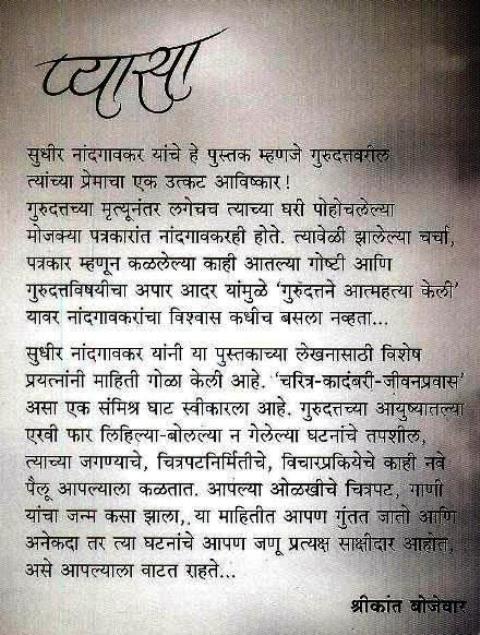 प्यासा
सुधीर नांदगावकर यांचे हे पुस्तक म्हणजे गुरुदत्तवरील
त्यांच्या प्रेमाचा एक उत्कट आविष्कार!
गुरुदत्तच्या मृत्यूनंतर लगेचच त्याच्या घरी पोहोचलेल्या
मोजक्या पत्रकारांत नांदगावकरही होते. त्यावेळी झालेल्या चर्चा,
पत्रकार म्हणून कळलेल्या काही आतल्या गोष्टी आणि
गुरुदत्तविषयीचा अपार आदर यांमुळे ‘गुरुदत्तने आत्महत्या केली’
यावर नांदगावकरांचा विश्वास कधीच बसला नव्हता...
सुधीर नांदगावकर यांनी या पुस्तकाच्या लेखनासाठी विशेष
प्रयत्नांनी माहिती गोळा केली आहे. ‘चरित्र-कादंबरी-जीवनप्रवास’
असा एक संमिश्र घाट स्वीकारला आहे. गुरुदत्तच्या आयुष्यातल्या
एरवी फार लिहिल्या-बोलल्या न गेलेल्या घटनांचे तपशील,
त्याच्या जगण्याचे, चित्रपटनिर्मितीचे, विचारप्रकियेचे काही नवे
पैलू आपल्याला कळतात. आपल्या ओळखीचे चित्रपट, गाणी
यांचा जन्म कसा झाला, या माहितीत आपण गुंतत जातो आणि
अनेकदा तर त्या घटनांचे आपण जणू प्रत्यक्ष साक्षीदार आहोत,
असे आपल्याला वाटत राहते...
श्रीकांत बोजेवार